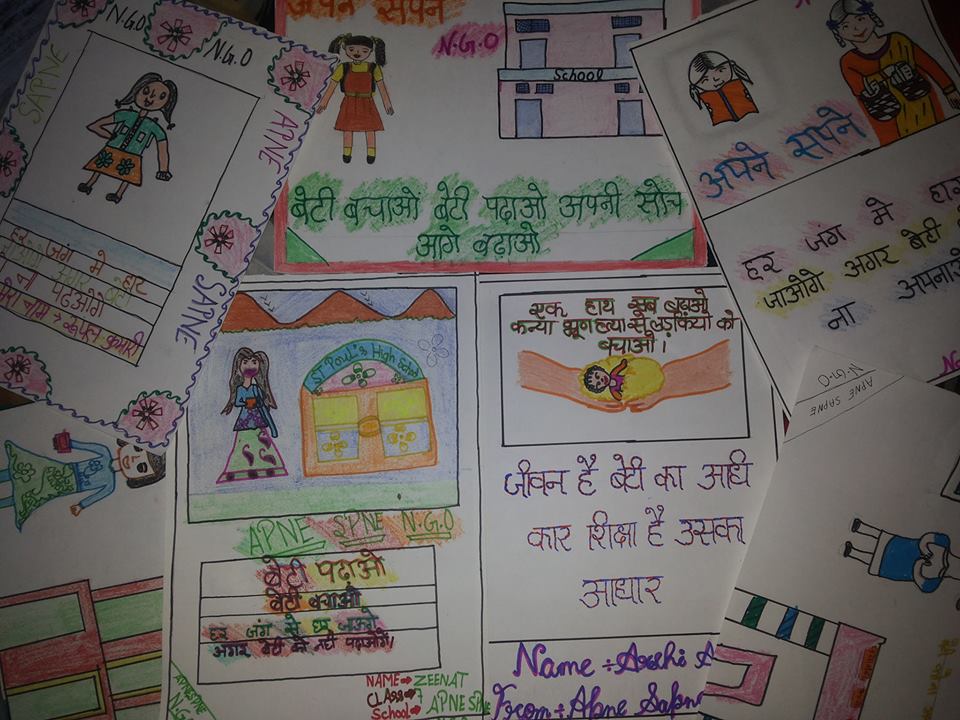 N.G.O
N.G.O
SAPNE
APNE
SAPNE
हर जंग मे हार
ना पढओगे
अपने सपने
N.G.O
School
बेटी बचाओ बेटी पढ़ाओ अपनी सोच
आगे बढ़ाओ
अपने सपने
हर जंग मे हार
जाओगे अगर बेटी
ना अपनाओ
ST Poul's High School
APNE SPNE N.G.O
बेटी पढाओ
बेटी बचाओ
हर जंग से
अगर बेटी को नही पढाओगे।
NAME⇒ ZEENAT
CLASS⇒ 7
School⇒ APNE SPNE
एक हाथ सब बढ़ाओ
कन्या भ्रूण हत्या से लड़कियो को
बचाओ।
जीवन है बेटी का आधि
कार शिक्षा है उसका
आधार
Name ÷ Arshi
From ÷ Apne Sapn
APNE SAPNE
N-G-O